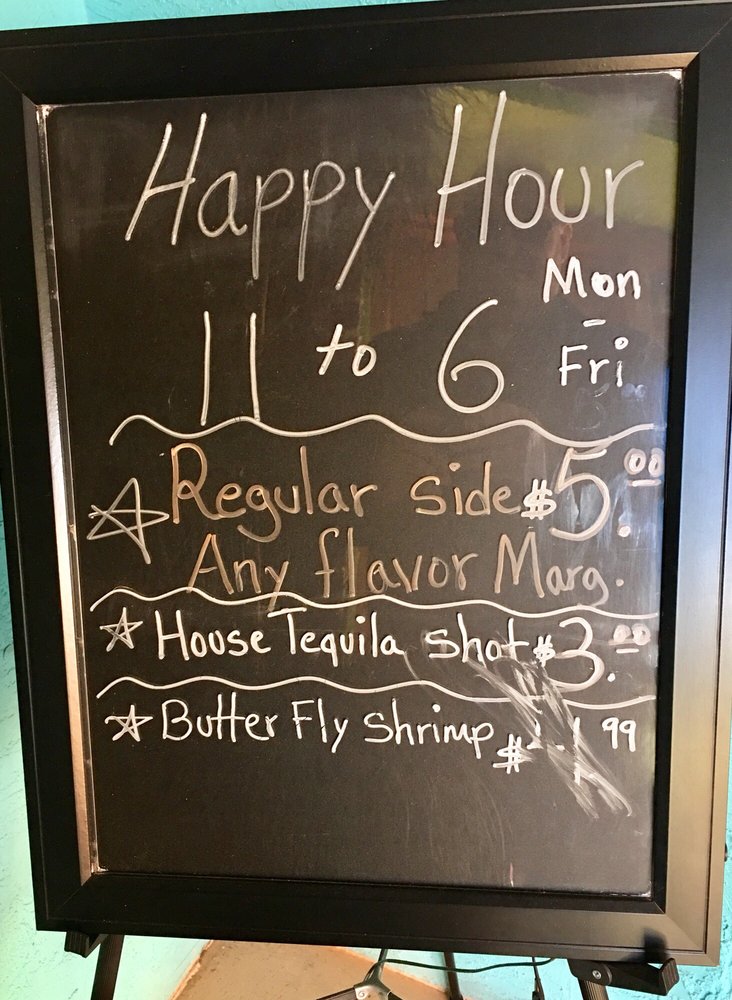 Happy Hour
11 to 6 Mon - Fri
Regular side $5.00
Any flavor Marg.
House Tequila shot $3.00
Butter Fly shrimp $ .99